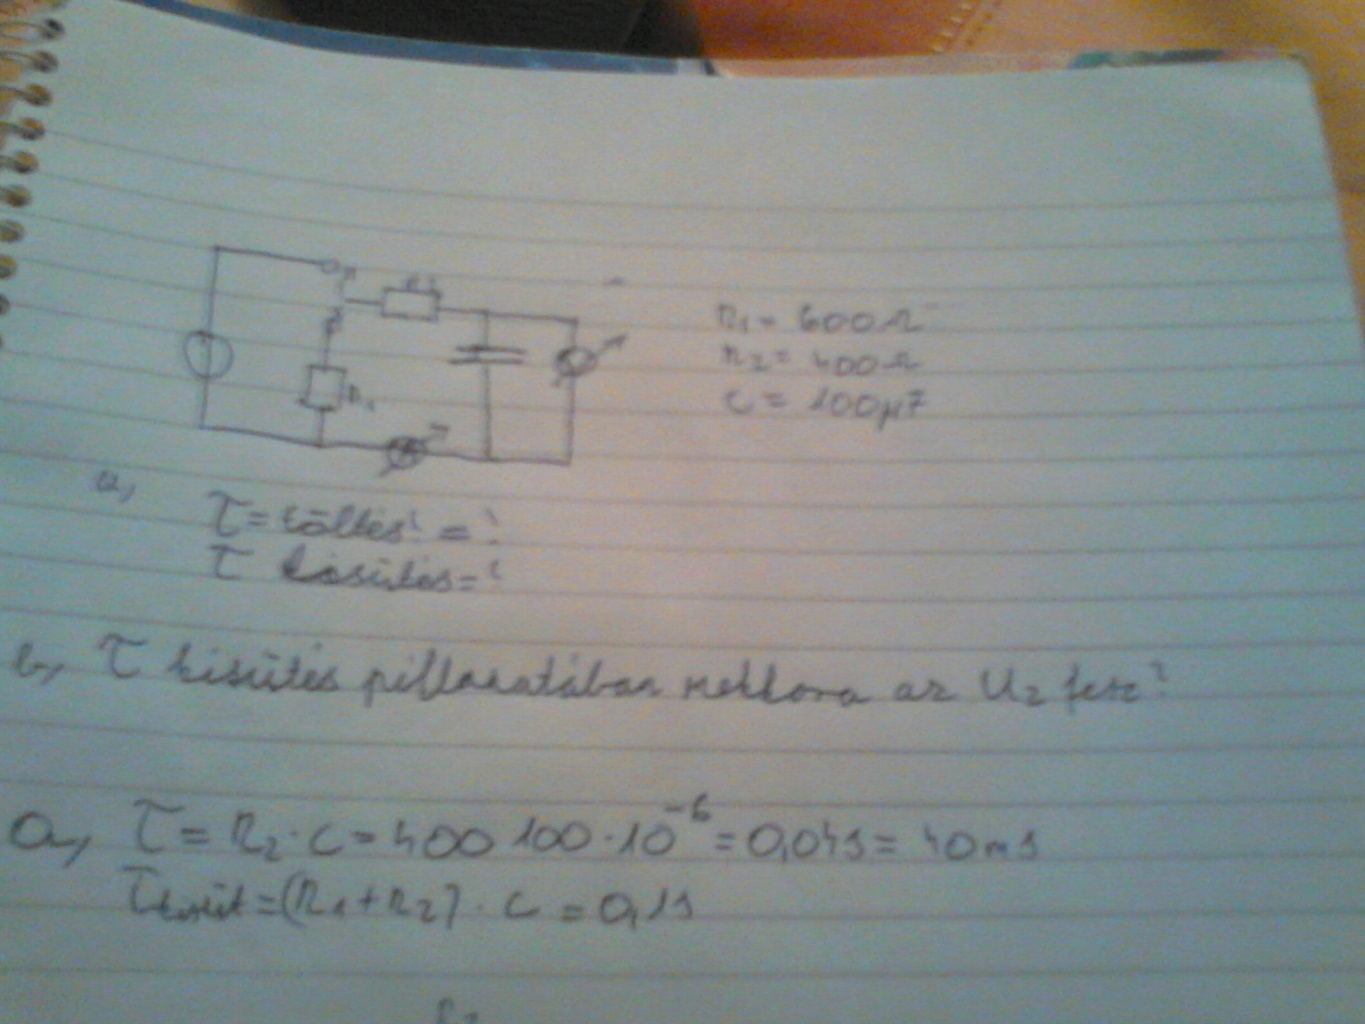 R₂
R₁ = 600Ω
R₂ = 400Ω
R₁
C = 100μF
a,
τ = töltés? = ?
τ kisütés = ?
b, τ kisütés pillanatában mekkora az U₂ fesz?
a, τ = R₂ · C = 400 100 · 10⁻⁶ = 0,04s = 40ms
τkisüt = (R₁ + R₂) · C = 0,1s